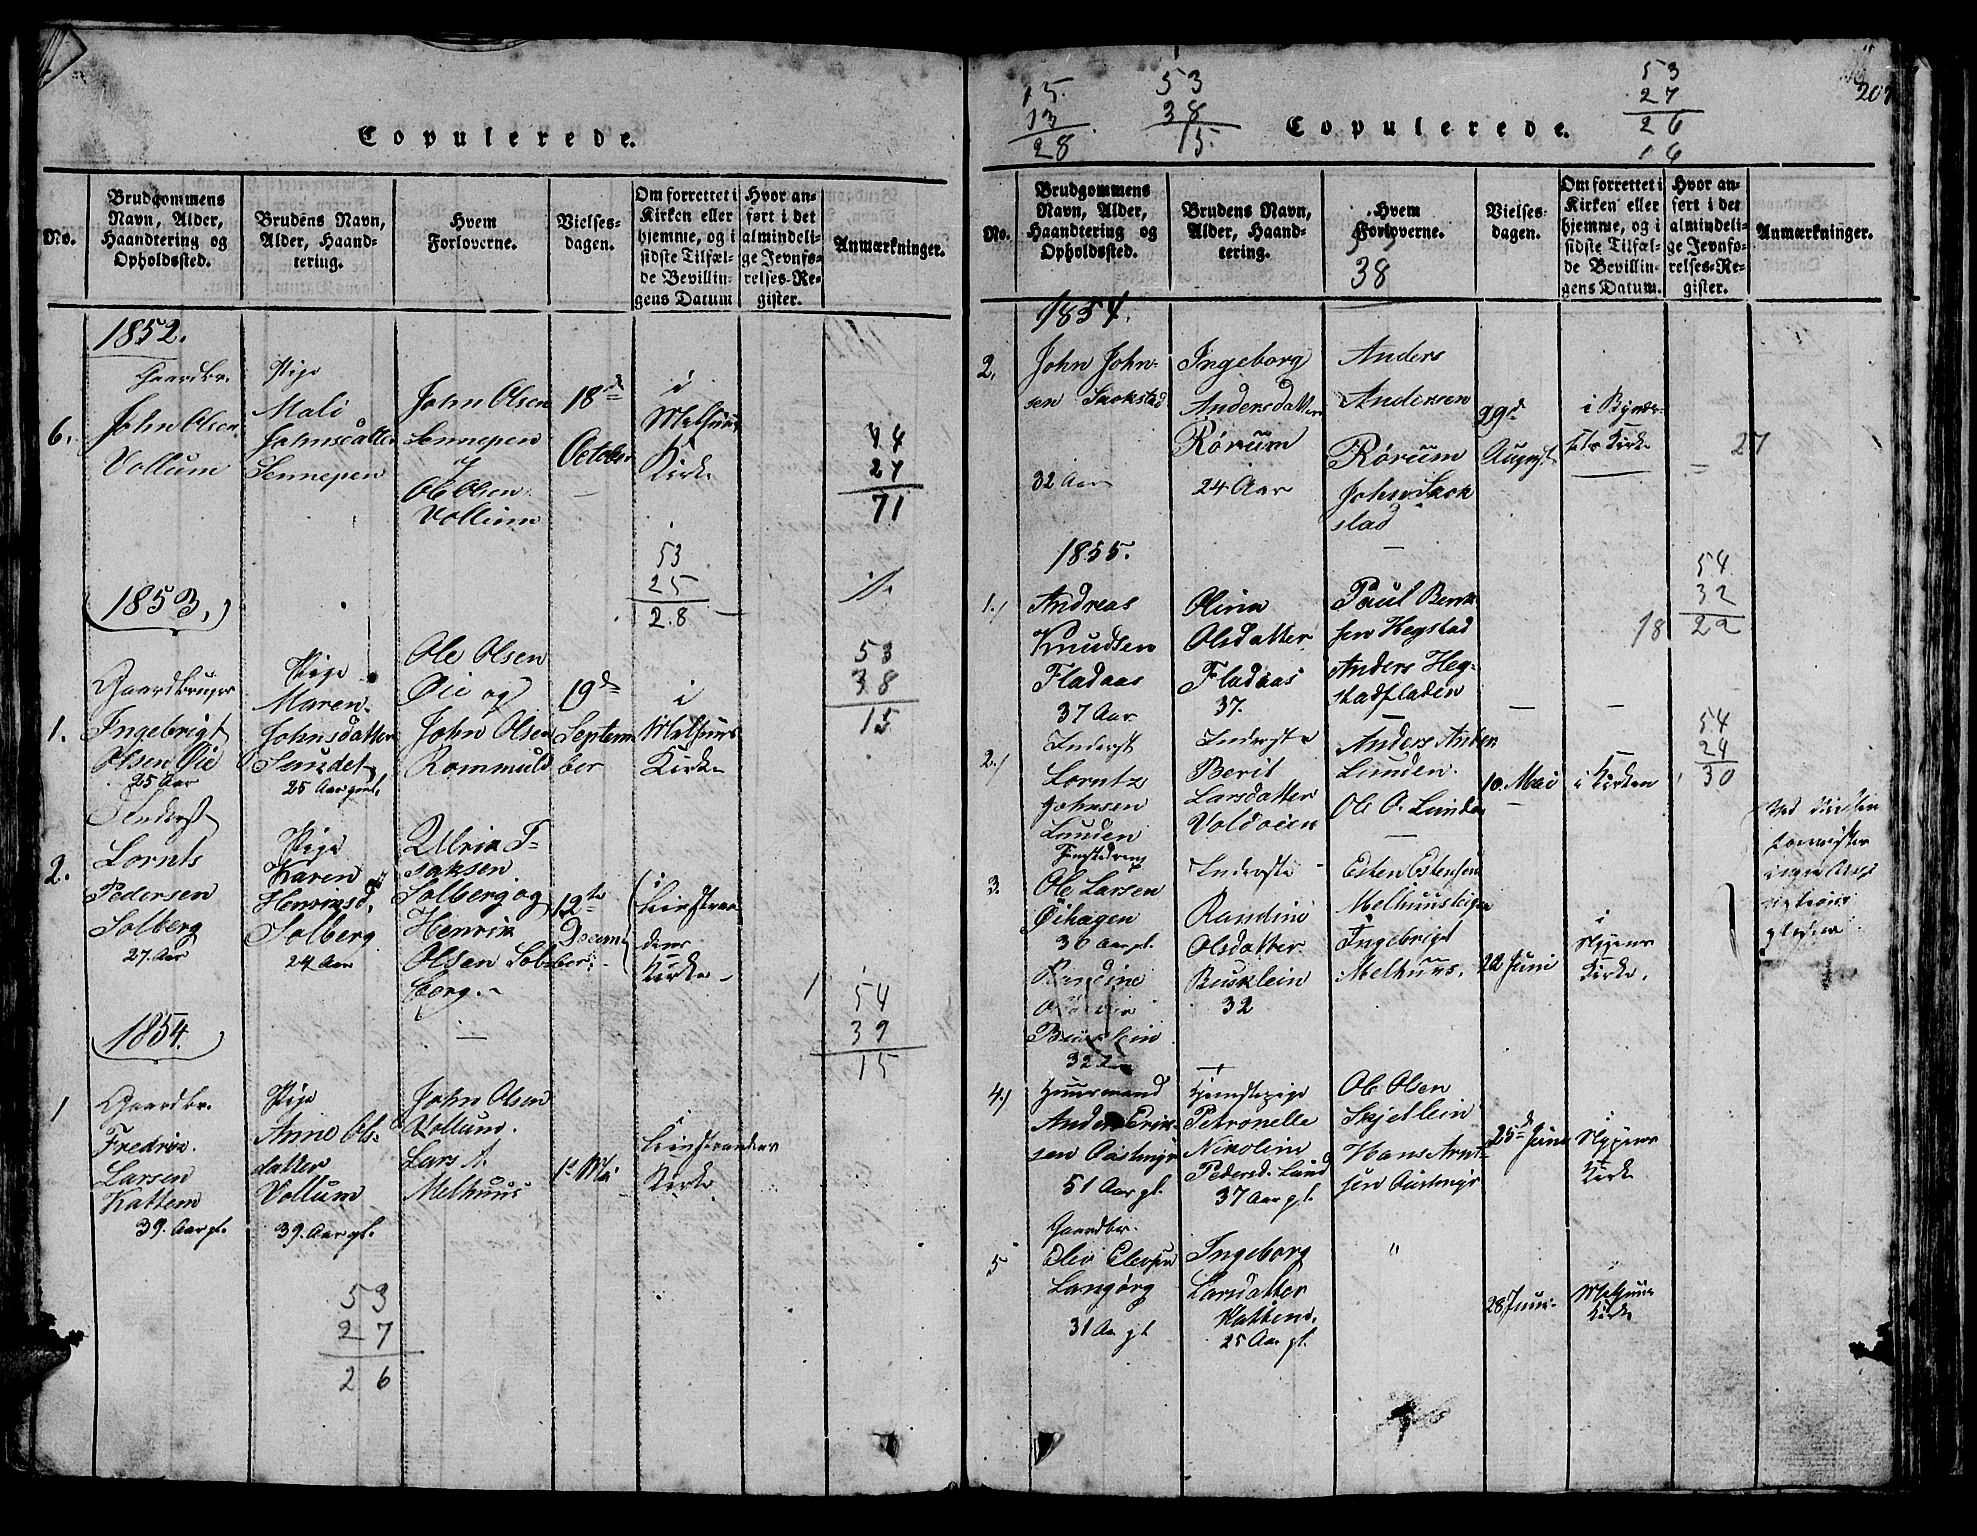 Copulerede.
No.
Brudgommens
Navn, Alder,
Haandtering og
Opholdssted.
Brudens Navn,
Alder, Haand-
tering.
Hvem
Forloverne.
Vielses-
dagen.
Om forrettet i
Kirken eller
hjemme, og i
sidste Tilfæl-
de Bevillin-
gens Datum
Hvor an-
ført i det
almindeli-
ge Jevnfø-
relses-Re-
gister.
Anmærkninger.
1852.
6.
Gaardbr.
John Olsen
Vollum
Pige
Mali
Johnsdatter
Sennepen
John Olsen
Sennepen
og
Ole Olsen
Vollum
18d
October
i
Melhuus
Kirke
44
27
71
53
25
28
(1853.)
1.
Gaardbruger
Ingebrigt
Olsen Øie
25 Aar
Pige
Maren
Johnsdatter
Sundet
25 Aar gml.
Ole Olsen
Øie og
John Olsen
Rommuld
19d
Septem
ber
i
Melhuus
Kirke
53
38
15
2.
Inderst
Lornts
Pedersen
Solberg
27 Aar
Pige
Karen
Henriksd.
Solberg
24 Aar
Ulrik I-
saksen
Solberg og
Henrik
Olsen Sol-
berg.
12te
Decem
ber.
i
Leinstran
dens
Kirke
54
39
15
(1854.)
1
Gaardbr.
Fredrik
Larsen
Kattem
39. Aar gl.
Pige
Anne Ols-
datter
Vollum
39. Aar gl.
John Olsen
Vollum.
Lars A.
Melhuus
1e Mai
i
Leinstrandens
Kirke
53
27
26
15.
13
28
53
38
15.
Copulerede.
53
27
26
16
207
No.
Brudgommens
Navn, Alder,
Haandtering og
Opholdssted.
Brudens Navn,
Alder, Haand-
tering.
Hvem
Forloverne.
38
Vielses-
dagen.
Om forrettet i
Kirken eller
hjemme, og i
sidste Tilfæl-
de Bevillin-
gens Datum.
Hvor an-
ført i det
almindeli-
ge Jevnfø-
relses-Re-
gister.
Anmærkninger.
1854.
2.
John John-
sen Skokstad
32 Aar
Ingeborg
Andersdatter
Rørum
24 Aar
Anders
Andersen
Rørum
John Skok
stad
29d
August
i Bynæs-
sets Kirke
27
1855.
1.)
Andreas
Knudsen
Fladaas
37 Aar
Olina
Olsdatter
Fladaas
37.
Paul Berk
sen Hegstad
Anders Heg-
stadfladen
18
54
32
22
2.)
Inderst
Lorntz
Johnsen
Lunden
Inderst
Berit
Larsdatter
Voldøien
Anders Ander
Lunden.
Ole O. Lunden
10. Mai
i Kirken
54
24
30
3.
Ole Larsen
Øihagen
30 Aar gl.
Randine
Buuklein
32 Aar
Inderste
Randine
Olsdatter
Buuklein
32
Esten Estensen
Melhuus
Ingebrigt
Melhuus.
22 Juni
i
Nypens
Kirke.
4.)
Huusmand
Anders Erik-
sen
51 Aar gl.
Petronelle
Nikoline
Pedersd. Lund
37 Aar gl.
Ole Olsen
Skjetlein
Hans Arnt
sen
25d Juni
i
Nypens
Kirke
5
Gaardbr.
Elev Elevsen
Langørg
31 Aar gl
Ingeborg
Larsdatter
Kattem.
25 Aar gl.
"
28 Juni
i
Melhuus
Kirke